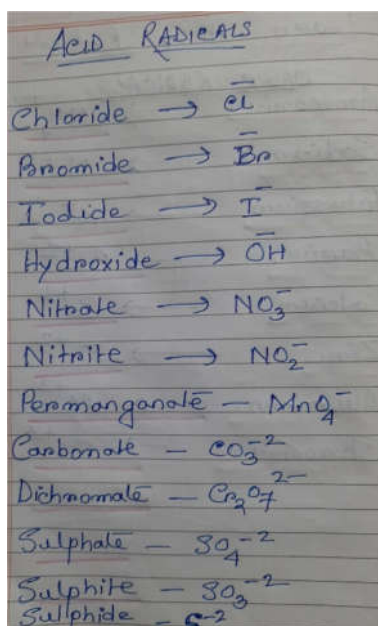 ACID RADICALS
Chloride → Cl⁻
Bromide → Br⁻
Iodide → I⁻
Hydroxide → OH⁻
Nitrate → NO₃⁻
Nitrite → NO₂⁻
Permanganate – MnO₄⁻
Carbonate – CO₃⁻²
Dichromate – Cr₂O₇²⁻
Sulphate – SO₄⁻²
Sulphite – SO₃⁻²
Sulphide – S⁻²